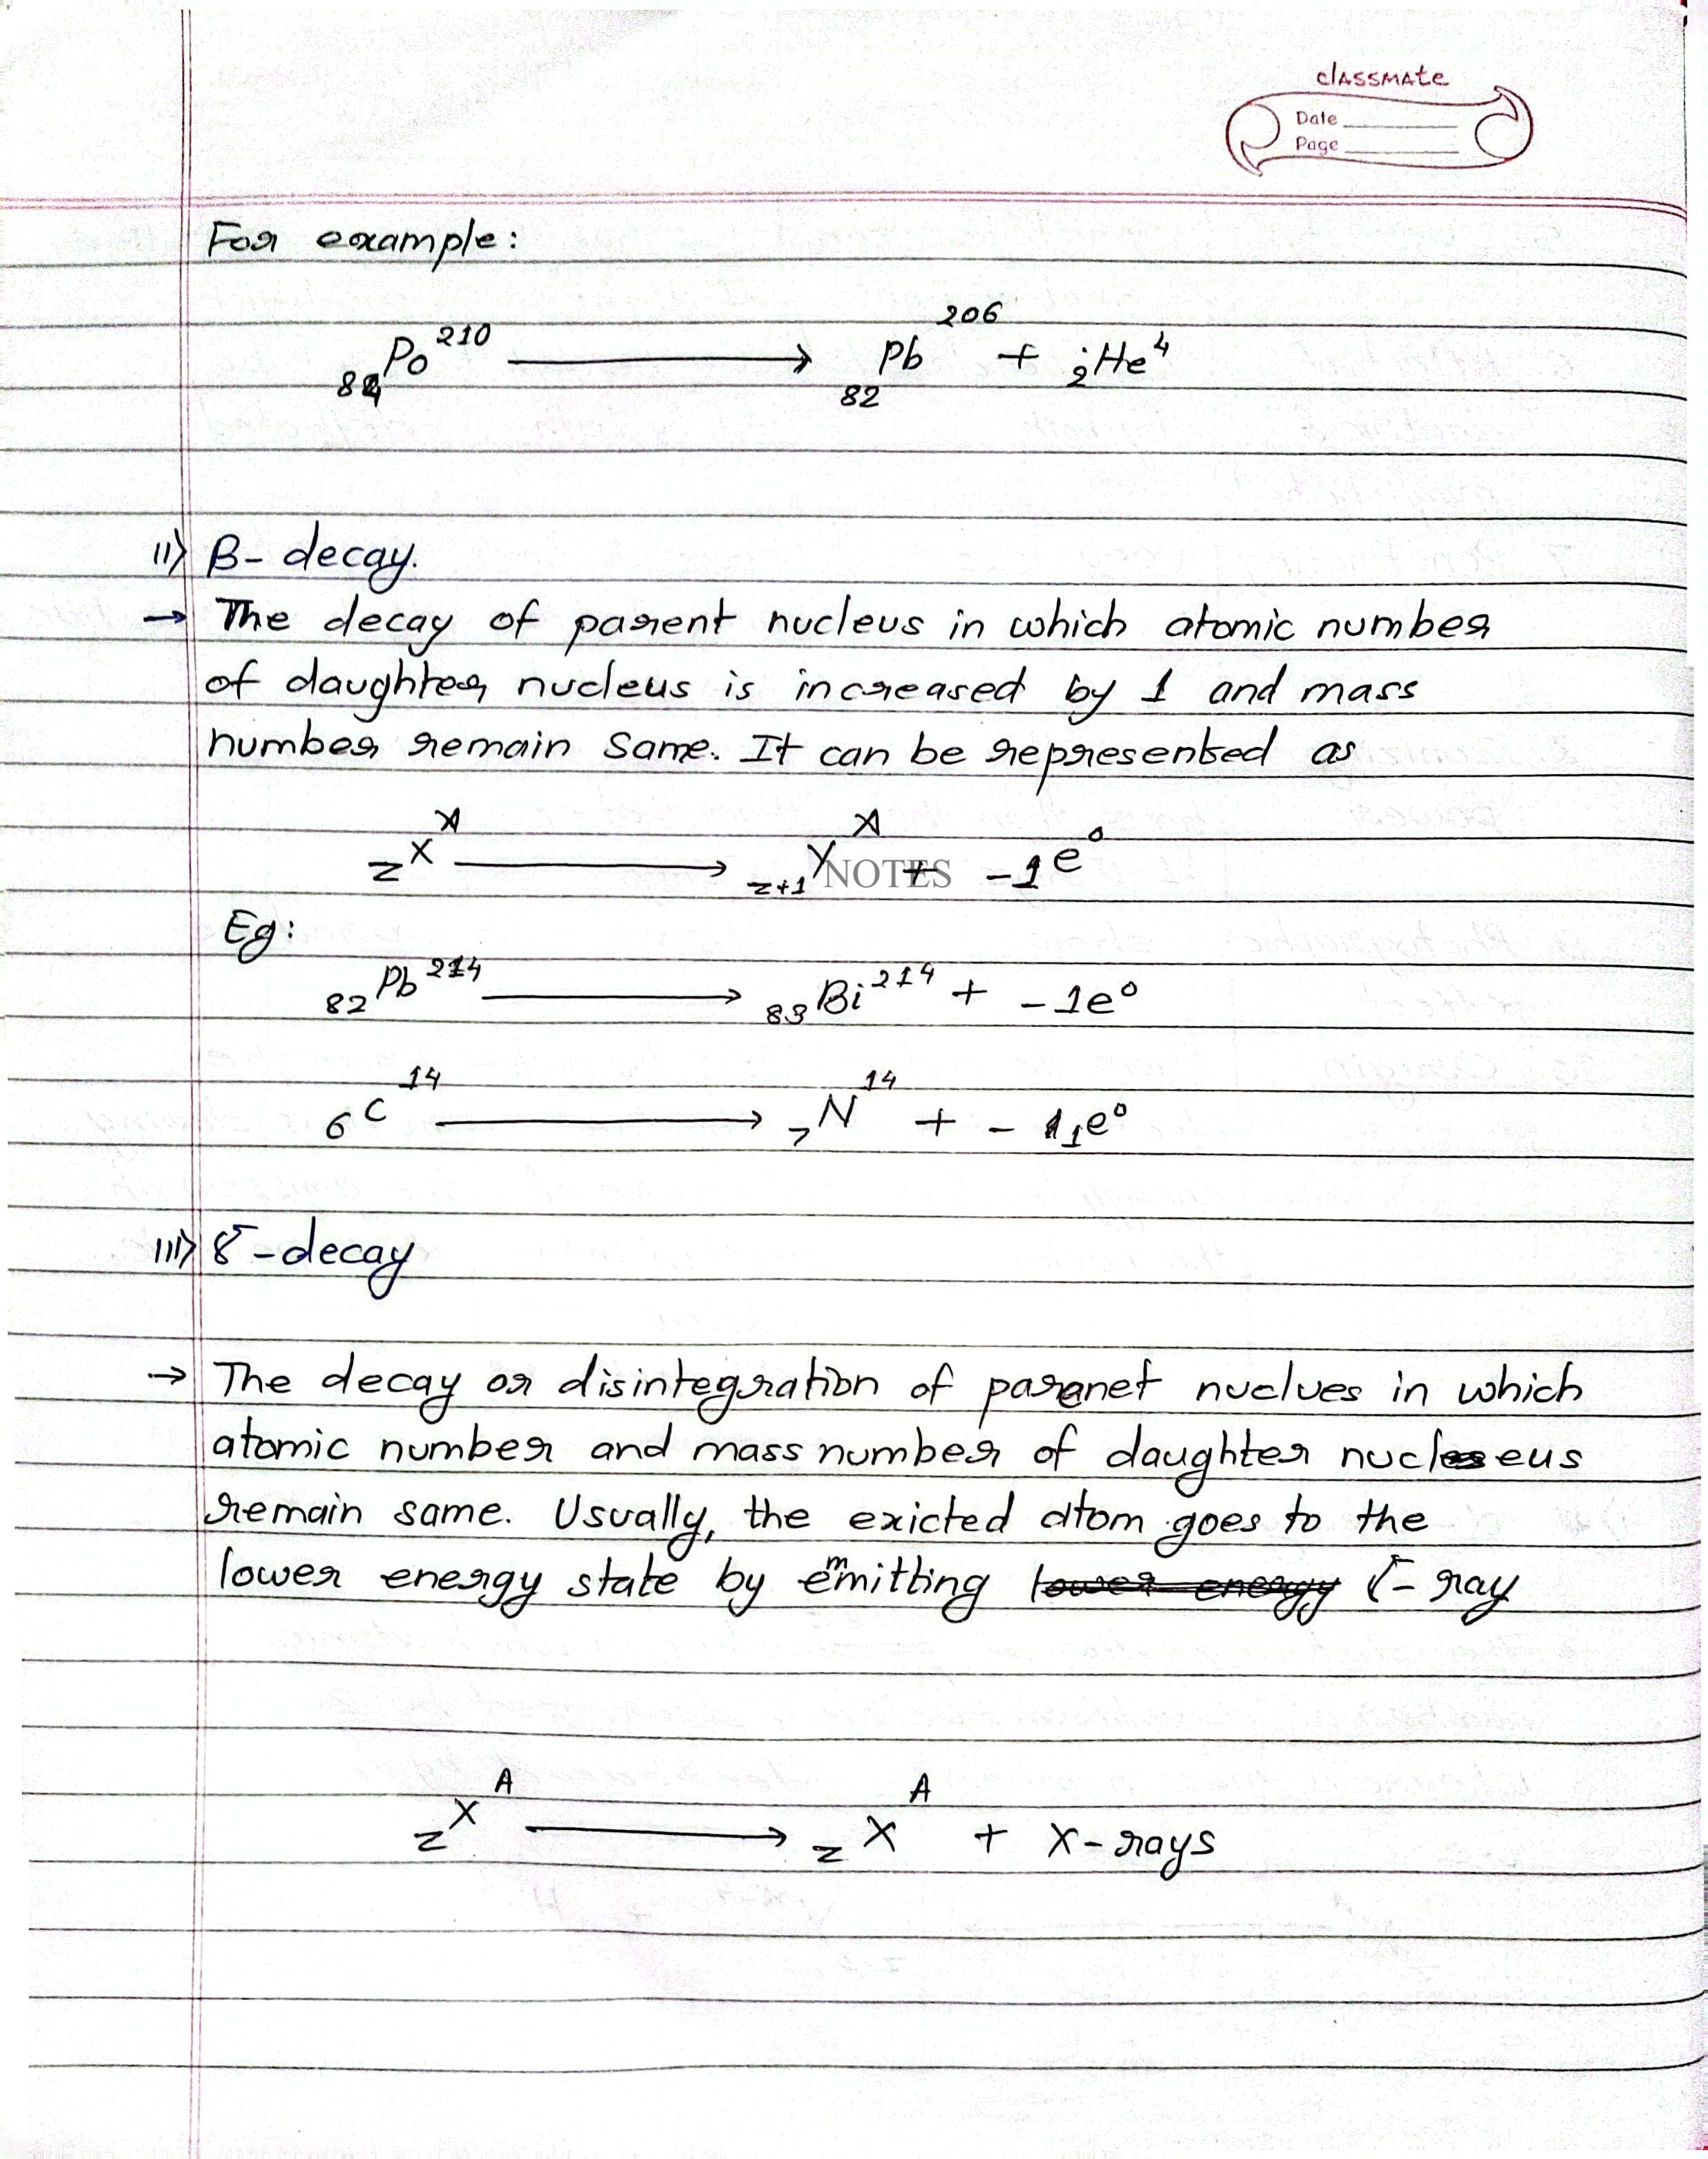 classmate
Date
Page
For example:
₈₄Po²¹⁰ ⟶ ₈₂Pb²⁰⁶ + ₂He⁴
II) β- decay.
→ The decay of parent nucleus in which atomic number
of daughter nucleus is increased by 1 and mass
number remain same. It can be represented as
zXᴬ ⟶ z+1Yᴬ + -1e⁰
NOTES
Eg:
₈₂Pb²¹⁴ ⟶ ₈₃Bi²¹⁴ + -1e⁰
₆C¹⁴ ⟶ ₇N¹⁴ + -₁e⁰
III) γ-decay
→ The decay or disintegration of paranet nuclues in which
atomic number and mass number of daughter nucleus
remain same. Usually, the exicted atom goes to the
lower energy state by emmitting lower energy γ- ray
zXᴬ ⟶ zXᴬ + X-rays